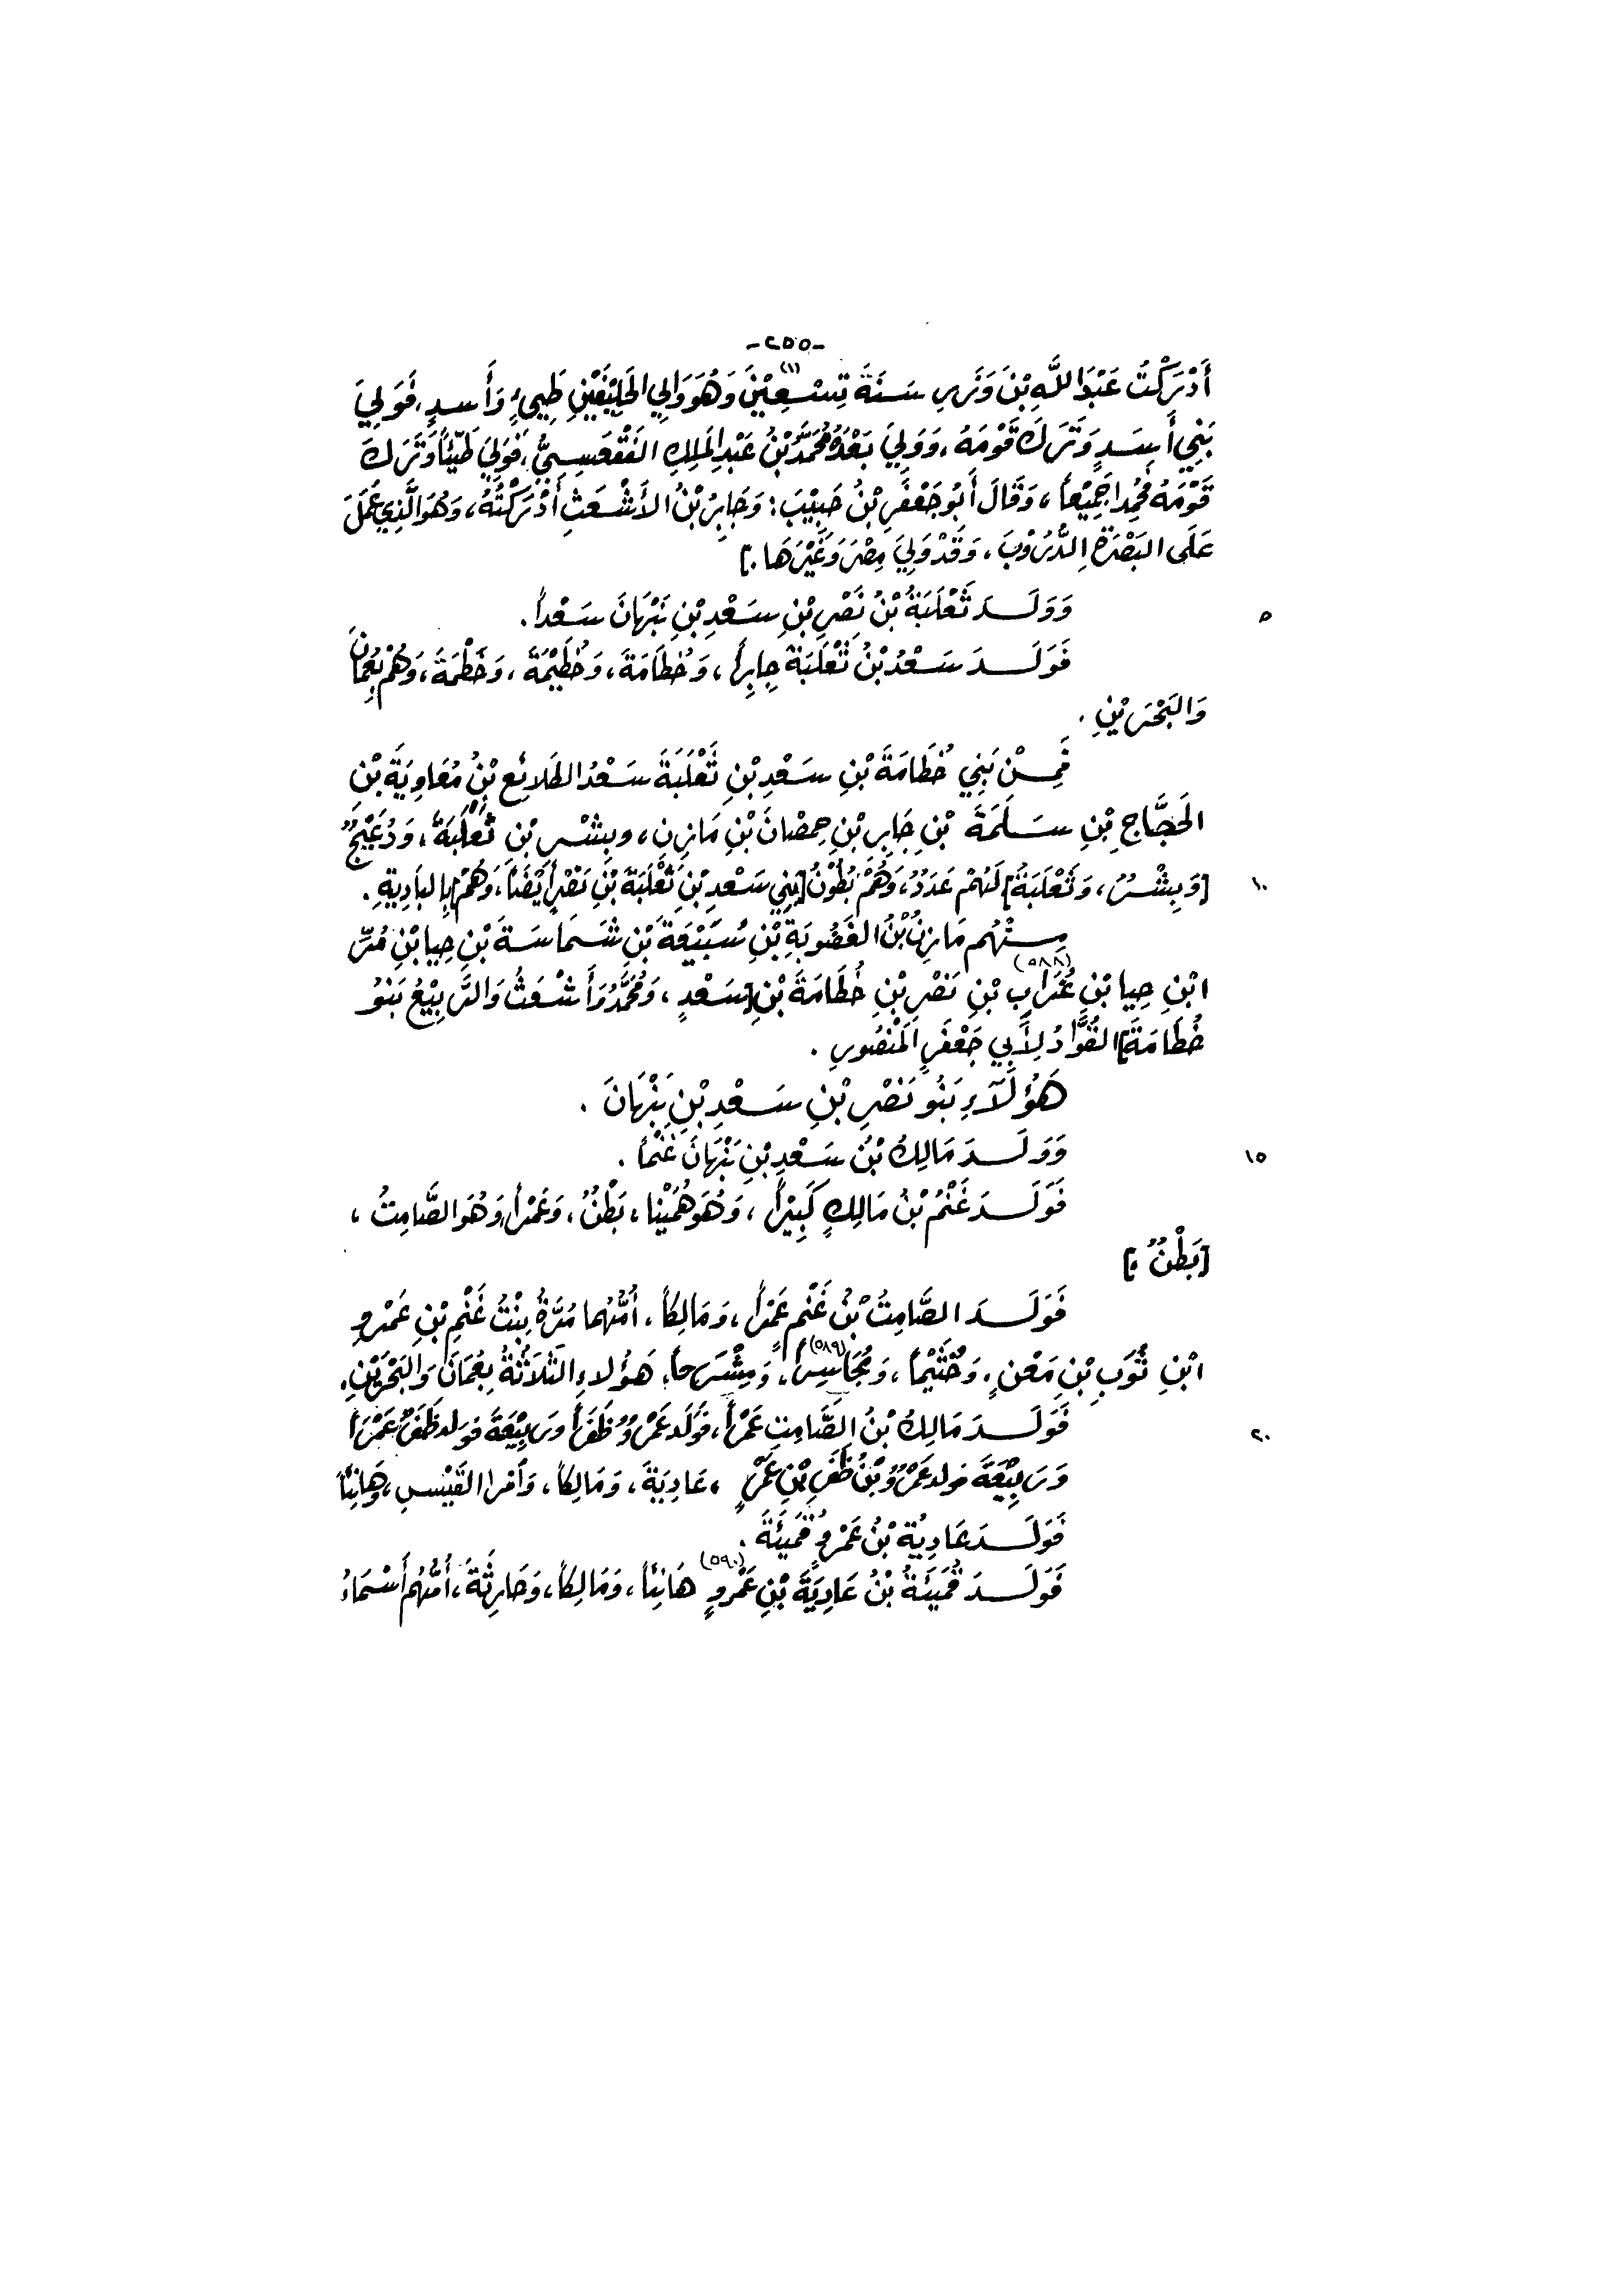 -٢٥٥-
أَدْرَكْتُ عَبْدَ اللَّهِ بْنَ وَزَرٍ سَنَةَ تِسْعِيْنَ (١) وَهُوَ وَالِي الحَلِيْفَيْنِ طَيِّيءٍ وَأَسدٍ، فَوَلِيَ
بَنِي أَسَدٍ وَتَرَكَ قَوْمَهُ، وَوَلِيَ بَعْدَهُ مُحَمَّدُ بْنُ عَبْدِ المَلِكِ الفَقْعَسِيُّ، فَوَلِيَ طَيِّئاً وَتَرَكَ
قَوْمَهُ فَحُمِدَا جَمِيْعاً، وَقَالَ أَبُو جَعْفَرِ بْنُ حَبِيْبَ: وَجَابِرُ بْنُ الأَشْعَثِ أَدْرَكْتُهُ، وَهُوَ الَّذِي عَمِلَ
عَلَى البَصْرَةِ الدُّرُوْبَ، وَقَدْ وَلِيَ مِصْرَ وَغَيْرَهَا.]
وَوَلَدَ ثَعْلَبَةُ بْنُ نَصْرِ بْنِ سَعْدِ بْنِ نَبْهَانَ سَعْداً.
٥
فَوَلَدَ سَعْدُ بْنُ ثَعْلَبَةَ جَابِراً، وَخُطَامَةَ، وَخُطَيْمَةَ، وَخَطْمَةَ، وَهُمْ بِعُمَانَ
وَالبَحْرَيْنِ.
فَمِنْ بَنِي خُطَامَةَ بْنِ سَعْدِ بْنِ ثَعْلَبَةَ سَعْدُ الطَلائِعِ بْنُ مُعَاوِيَةَ بْنِ
الحَجَّاجِ بْنِ سَلَمَةَ بْنِ جَابِرِ بْنِ حِصْانَ بْنِ مَازِنِ، وبِشْرِ بْنِ ثَعْلَبَةَ، وَدُعَيْجٌ
[وَبِشْرٌ، وَثَعْلَبَةُ] لَهُمْ عَدَدٌ، وَهُمْ بُطُوْنُ [بَنِي سَعْدِ بْنِ ثَعْلَبَةَ بْنِ نَصْرٍ أَيْضَاً، وَهُمْ] بِالبَادِيَةِ.
١٠
مِنْهُم مَازِنُ بْنُ الغَضُوبَةِ بْنِ سُبَيْعَةَ بْنِ شَمَاسَةَ بْنِ حِيا بْنِ مُرِّ
ابْنِ حِيا بْنِ غُرَابِ (٥٨٨) بْنِ نَصْرِ بْنِ خُطَامَةَ بْنِ [سَعْدٍ، وَمُحَمَّدُ وَأَشْعَثُ وَالرَّبِيْعُ بَنُو
خُطَامَةَ] القُوَّادُ لِأَبِي جَعْفَرٍ المَنْصُورِ.
هَؤُلآءِ بَنُو نَصْرِ بْنِ سَعْدِ بْنِ نَبْهَانَ.
وَوَلَدَ مَالِكُ بْنُ سَعْدِ بْنِ نَبْهَانَ غَنْماً.
١٥
فَوَلَدَ غَنْمُ بْنُ مَالِكٍ كَبِيْراً، وَهُوَ هُمَيْنا، بَطْنٌ، وَعَمْراً وَهُوَ الصَّامِتُ،
[بَطْنٌ.]
فَوَلَدَ الصَّامِتُ بْنُ غَنْمٍ عَمْراً، وَمَالِكاً، أُمُّهُما مُرَّةُ بِنْتُ غَنْمِ بْنِ عَمْرِو
ابْنِ ثُوَبِ بْنِ مَعْنٍ، وَخُثَيْماً، وَمُجَاسِراً (٥٨٩)، وَمِشْرَحاً، هَؤُلاءِ الثَّلَاثَةُ بِعُمَانَ وَالبَحْرَيْنِ.
فَوَلَدَ مَالِكُ بْنُ الصَّامِتِ عَمْراً، فَوَلَدَ عَمْرٌو ظَفَراً وَرَبِيْعَةَ فولد ظَفَرٌ عَمْراً
٢٠
وَرَبِيْعَةَ فولد عَمْرُو بْنُ ظَفَرِ بْنِ عَمْرٍو، عَادِيَةَ، وَمَالِكاً، وَآمْرأ القَيْسِ، وَهَانِئاً
فَوَلَدَ عَادِيَةُ بْنُ عَمْرٍو قُمَيْئَةَ.
فَوَلَدَ قُمَيْئَةُ بْنُ عَادِيَةَ بْنِ عَمْرٍو (٥٩٠) هَانِئاً، وَمَالِكاً، وَحَارِثَةَ، أُمُّهُم أَسْمَاءُ